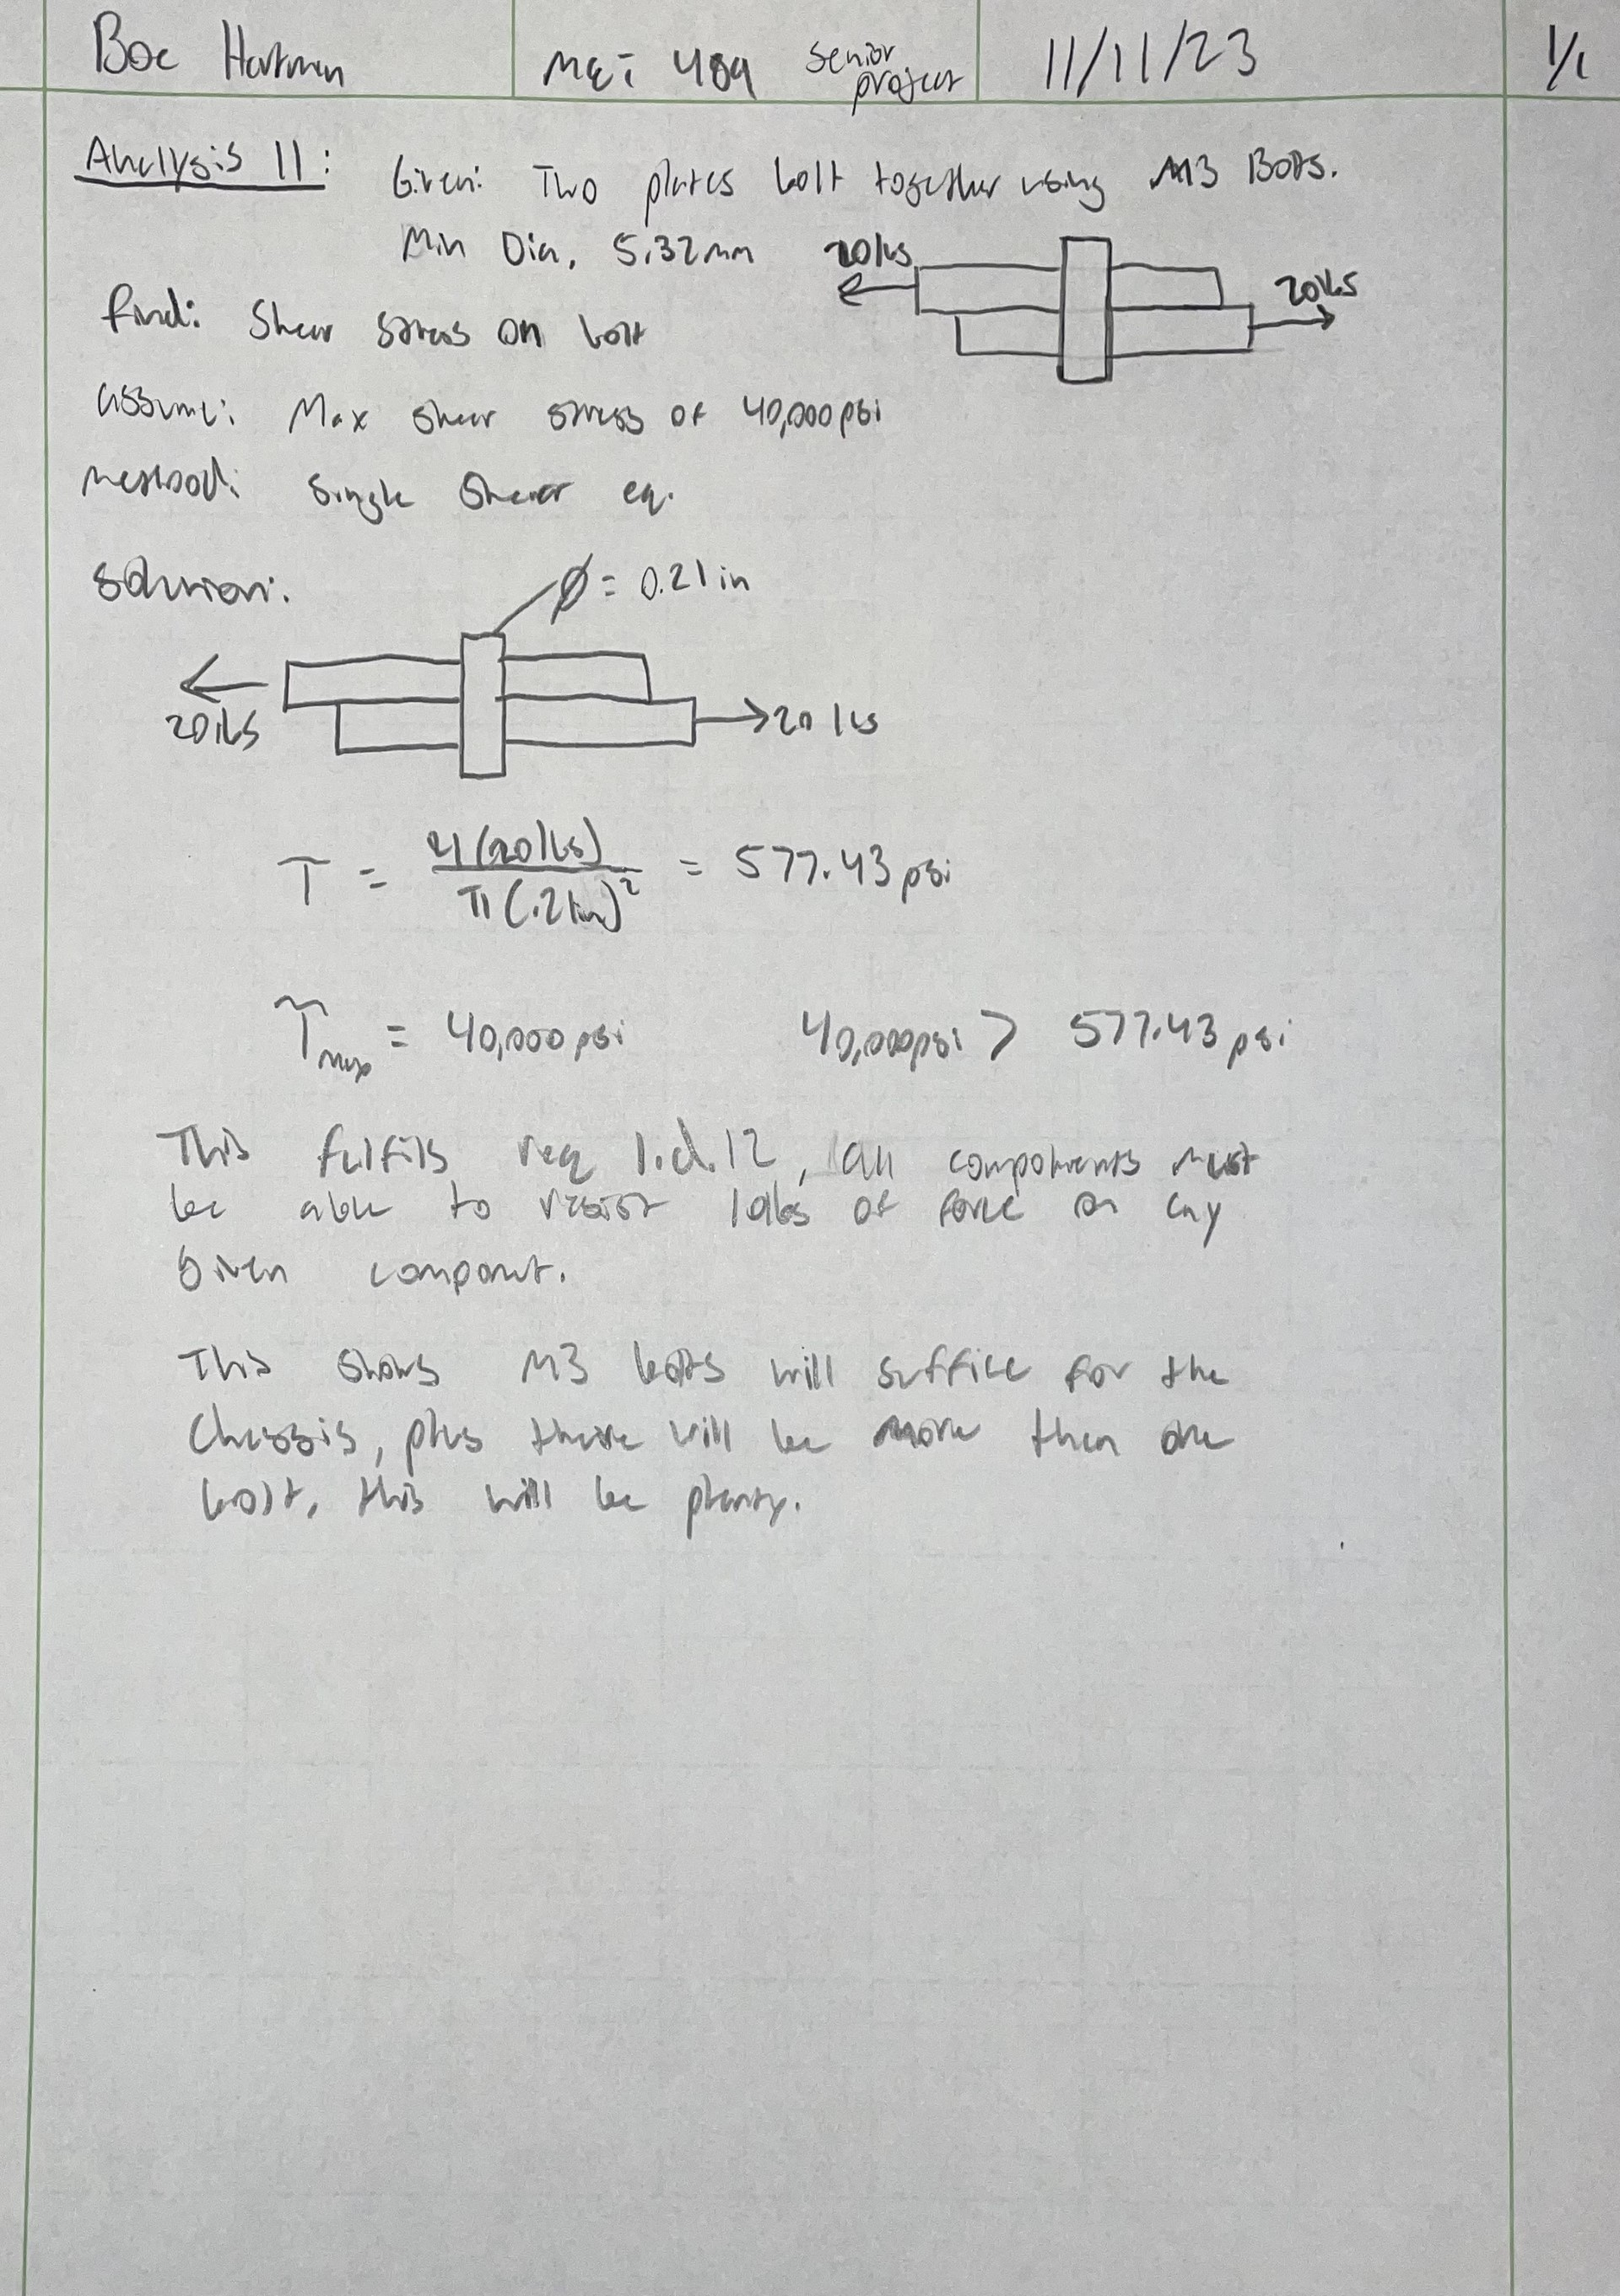 Boe Hartman MET 489 Senior project 11/11/23 1/1
Analysis 11: Given: Two plates bolt together using M3 Bolts.
Min Dia. 5.32mm
20lbs
20lbs
find: Shear stress on bolt
assume: Max shear stress of 40,000 psi
Method: Single Shear eq.
Solution:
Ø = 0.21in
20lbs
20 lbs
T = 4(20lbs) / π(.21in)² = 577.43 psi
Tmax = 40,000 psi 40,000psi > 577.43 psi
This fulfils req 1.d.12, all components must
be able to resist 10lbs of force on any
given componet.
This shows M3 bolts will suffice for the
Chassis, plus there will be more then one
bolt, this will be plenty.